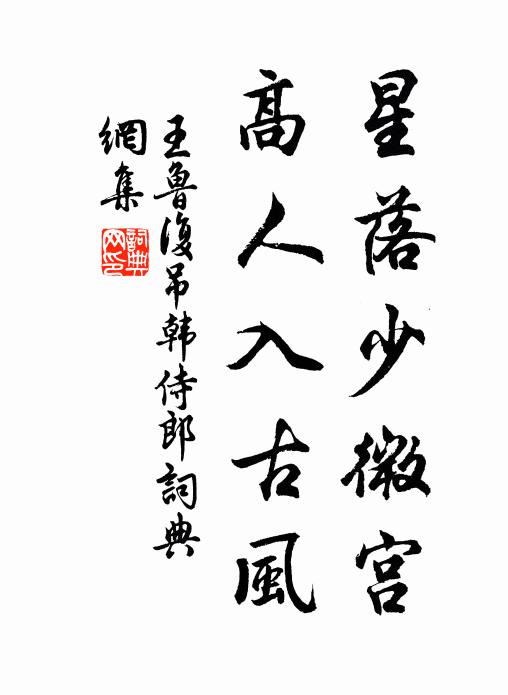 星落少微宫
高人入古風
王魯復吊韩侍郎詞典
網集
詞典
网印